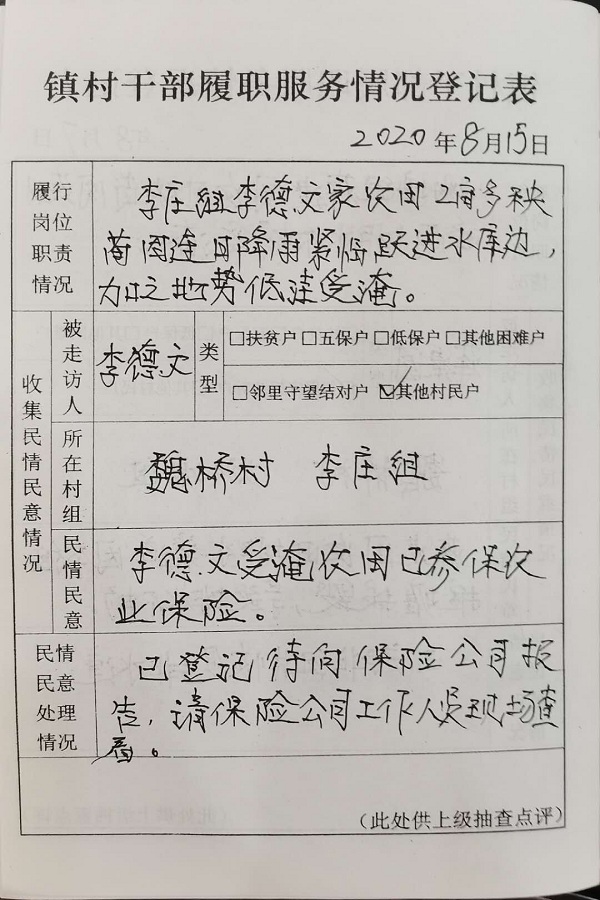 镇村干部履职服务情况登记表
2020年8月15日
履行岗位职责情况
李庄组李德文家农田2亩多秧
苗因连日降雨紧临跃进水库边,
加之地势低洼受淹。
收集民情民意情况
被走访人
李德文
类型
□扶贫户□五保户□低保户□其他困难户
□邻里守望结对户 ☑其他村民户
所在村组
魏桥村 李庄组
民情民意
李德文受淹农田已参保农
业保险。
民情民意处理情况
已登记待向保险公司报
告,请保险公司工作人员现场查
看。
(此处供上级抽查点评)